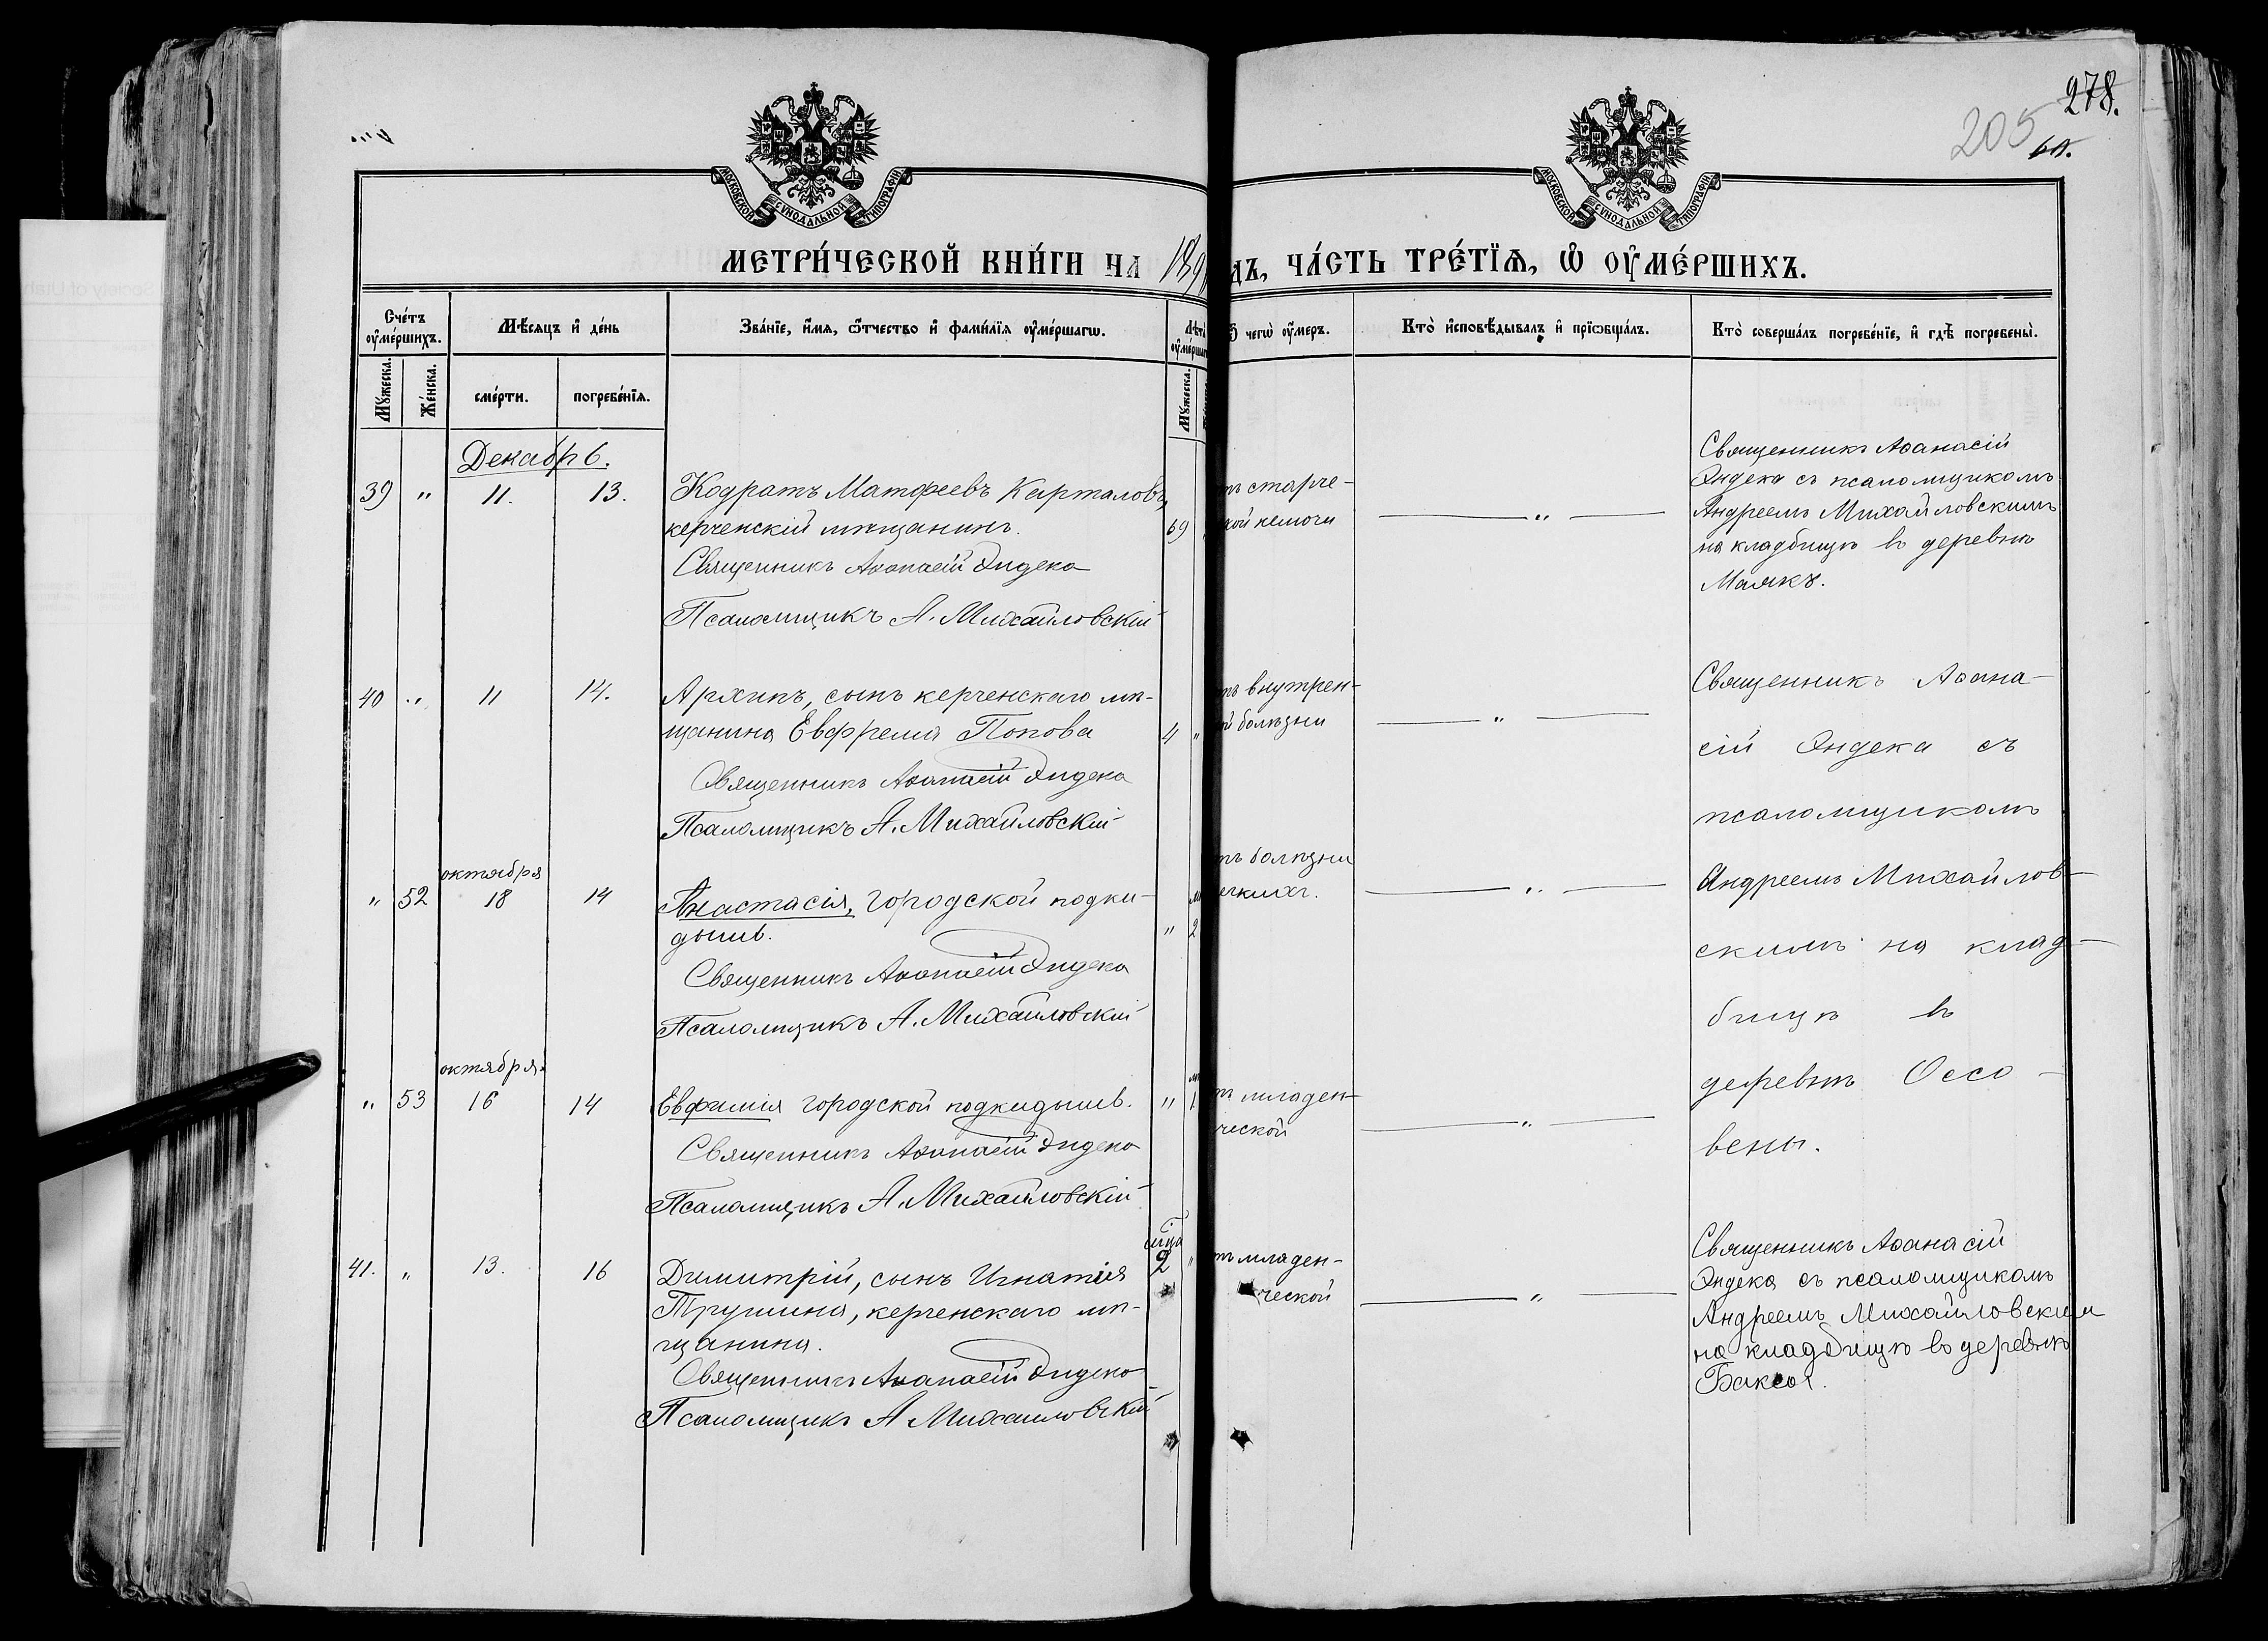 278.
205
60.
МОСКОВСКОЙ СѴНОДАЛЬНОЙ ТИПОГРАФІИ
МОСКОВСКОЙ СѴНОДАЛЬНОЙ ТИПОГРАФІИ
МЕТРИ́ЧЕСКОЙ КНИ́ГИ НА 189
ДЪ, ЧА́СТЬ ТРЕ́ТЇѦ, Ѡ҆ ОУ҆МЕ́РШИХЪ.
Сче́тъ оу҆ме́ршихъ.
Мѣ́сѧцъ и҆ де́нь
Зва́нїе, и҆́мѧ, ѻ҆́тчество и҆ фами́лїѧ оу҆ме́ршагѡ.
Лѣта
оу҆ме́ршаг
ѿ чегѡ̀ оу҆́меръ.
Кто̀ и҆сповѣ́дывалъ и҆ прїѡбща́лъ.
Кто̀ соверша́лъ погребе́нїе, и҆ гдѣ̀ погребены̀.
Мꙋ́жеска.
Же́нска.
сме́рти.
погребе́нїѧ.
Мꙋ́жеска.
Декабрь.
39 " 11. 13. Кодратъ Матѳеевъ Карталовъ,
керченскій мѣщанинъ. 69
Священникъ Аѳанасій Эндека
Псаломщикъ А. Михайловскій
тъ старче-
кой немочи
— " —
Священникъ Аѳанасій
Эндека съ псаломщикомъ
Андреемъ Михайловскимъ
на кладбищѣ въ деревнѣ
Маякъ.
40 " 11 14. Архипъ, сынъ керченскаго мѣ-
щанина Евфрема Попова 4 "
Священникъ Аѳанасій Эндека
Псаломщикъ А. Михайловскій
тъ внутрен-
й болѣзни
— " —
Священникъ Аѳана-
сій Эндека съ
псаломщикомъ
Андреемъ Михайлов-
скимъ на клад-
бищѣ въ
деревнѣ Оссо-
вены.
октября
" 52 18 14 Анастасія, городской подки-
дышъ. " 2
Священникъ Аѳанасій Эндека
Псаломщикъ А. Михайловскій
тъ болѣзни
— " —
октября
" 53 16 14 Евфимія городской подкидышъ. " 1
Священникъ Аѳанасій Эндека
Псаломщикъ А. Михайловскій
тъ младен-
ческой
— " —
41. " 13. 16 Димитрій, сынъ Игнатія 2 "
Трушина, керченскаго мѣ-
щанина.
Священникъ Аѳанасій Эндека
Псаломщикъ А Михайловскій
тъ младен-
ческой
— " —
Священникъ Аѳанасій
Эндека съ псаломщикомъ
Андреемъ Михайловским
на кладбищѣ въ деревнѣ
Баксы.